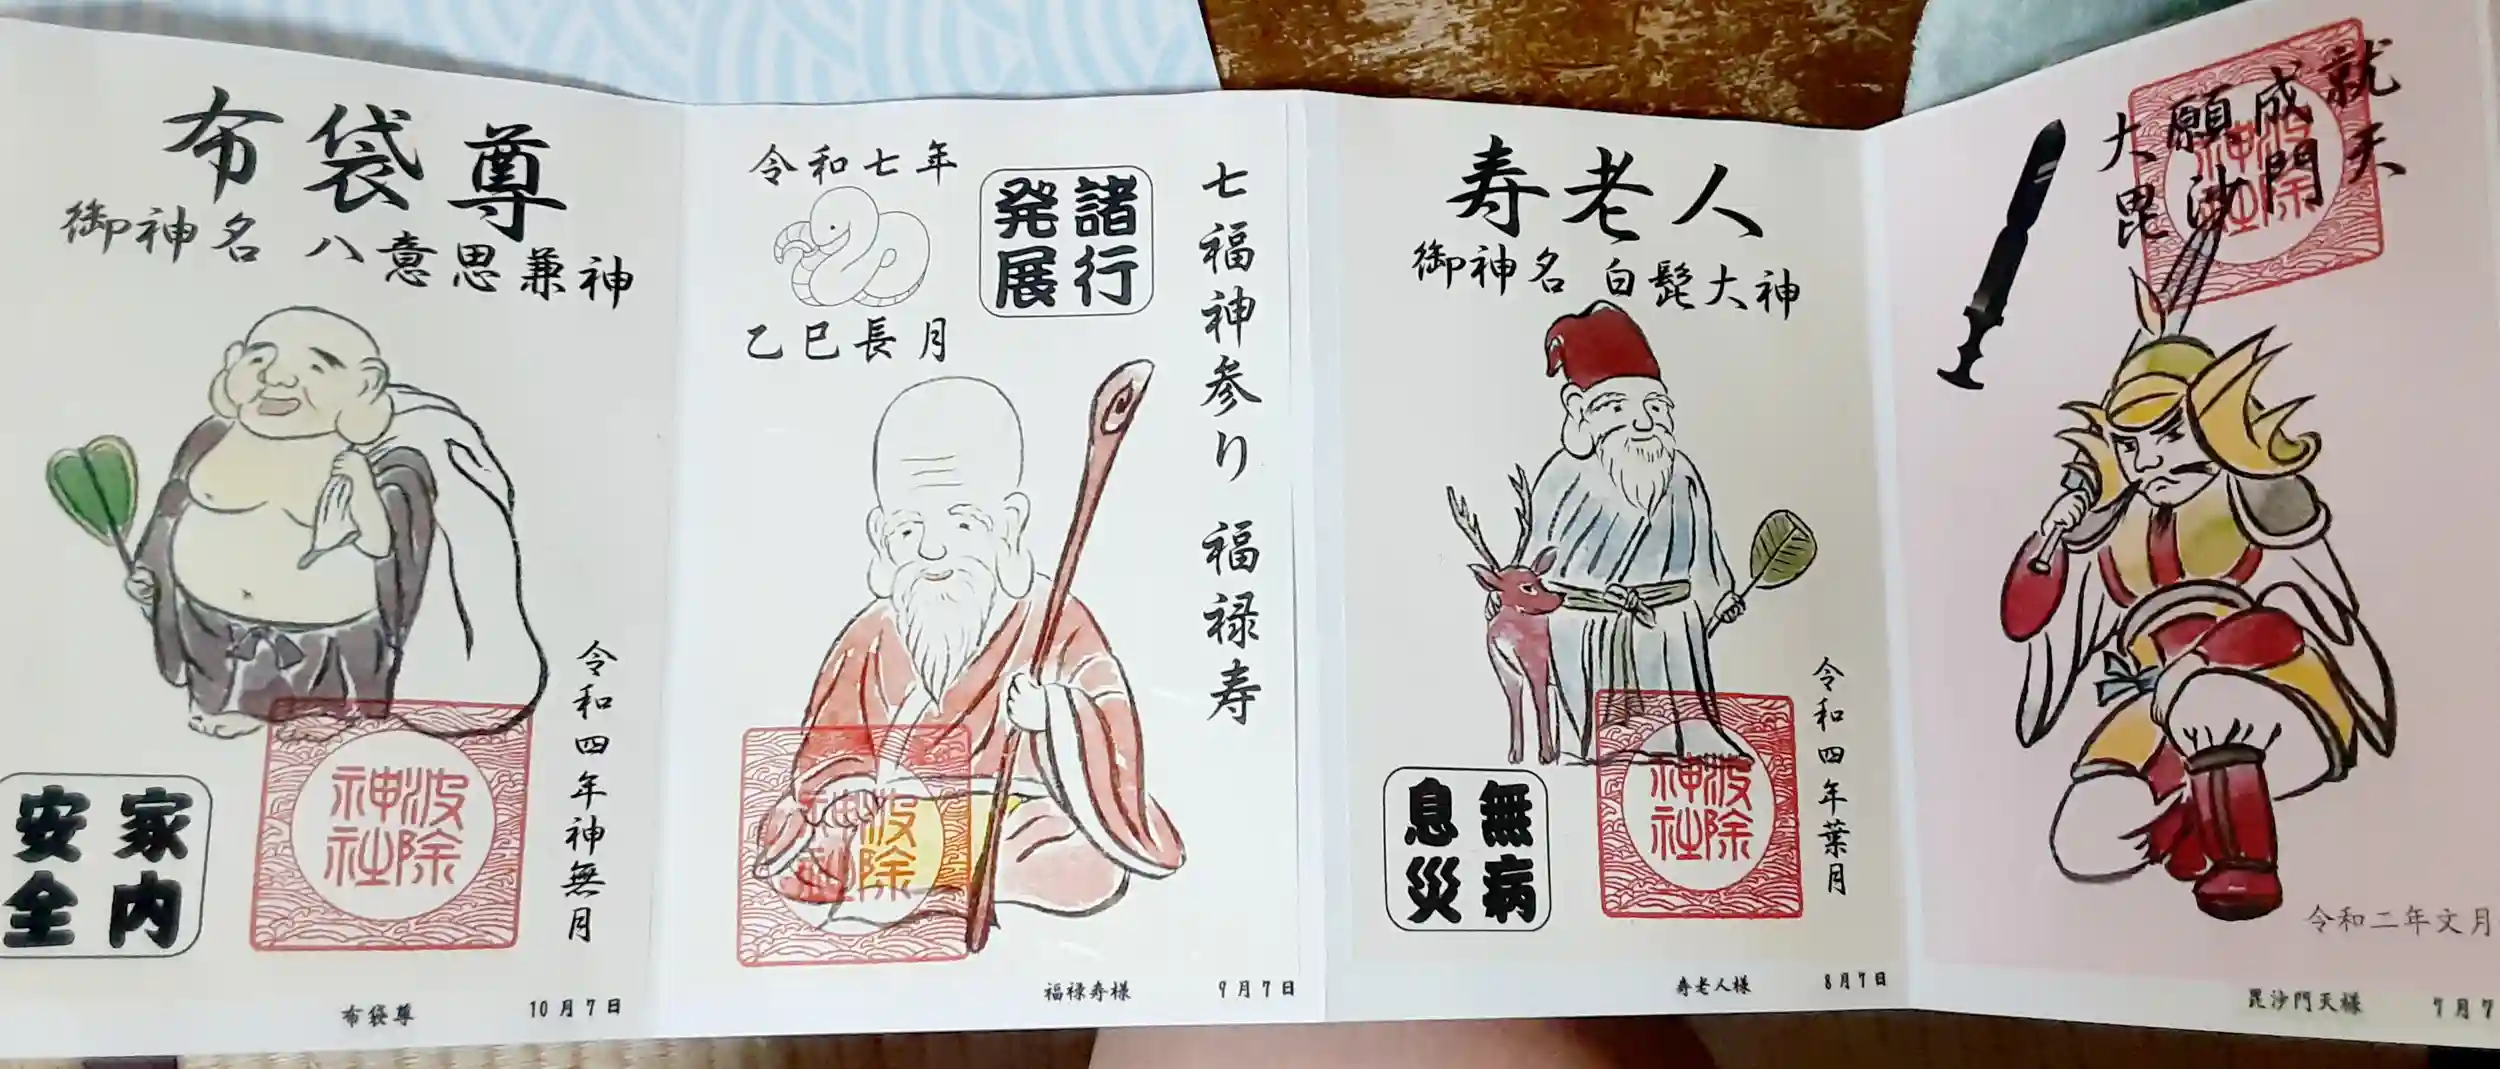 布袋尊
御神名 八意思兼神
令和四年神無月
家内
安全
波除
神社
布袋尊
10月7日
令和七年
諸行
発展
乙巳長月
七福神参り 福禄寿
波除
神社
福禄寿様
9月7日
寿老人
御神名 白髭大神
令和四年葉月
無病
息災
波除
神社
寿老人様
8月7日
大願成就
毘沙門天
波除
神社
令和二年文月
毘沙門天様
7月7